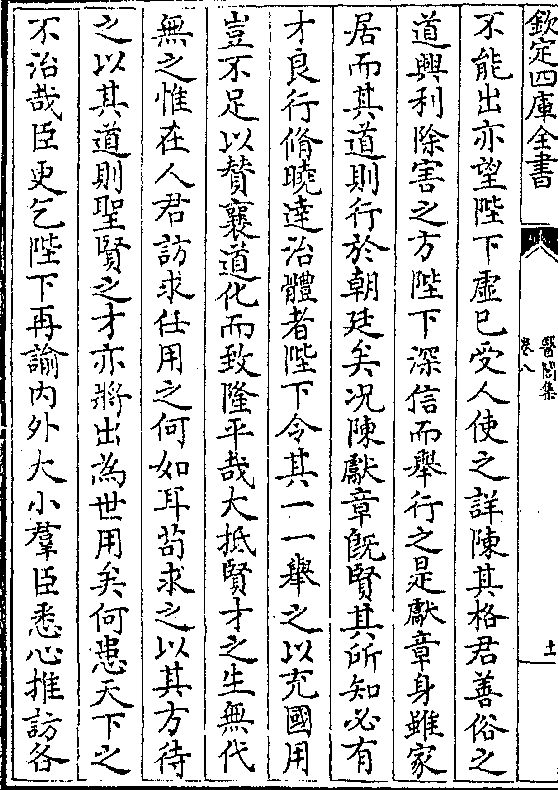 欽定四庫全書
醫閭集
卷八
十一
不能出亦望陛下虛己受人使之詳陳其格君善俗之
道興利除害之方陛下深信而舉行之是獻章身雖家
居而其道則行於朝廷矣况陳獻章既賢其所知必有
才良行脩曉達治體者陛下令其一一舉之以充國用
豈不足以賛襄道化而致隆平哉大抵賢才之生無代
無之惟在人君訪求任用之何如耳苟求之以其方待
之以其道則聖賢之才亦將出為世用矣何患天下之
不治哉臣更乞陛下再諭内外大小羣臣悉心推訪各